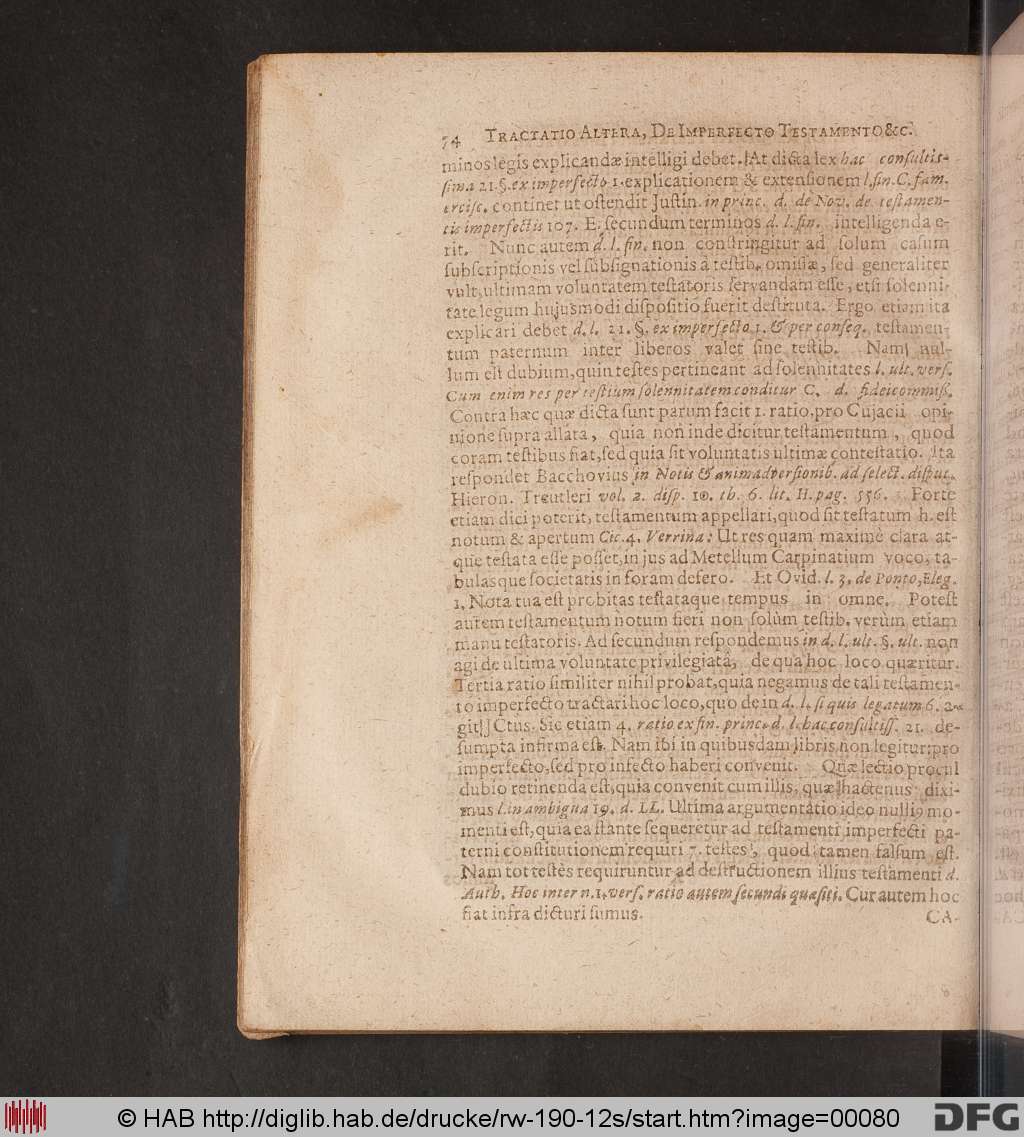 74 TRACTATIO ALTERA, DE IMPERFECTO TESTAMENTO &c.
minos legis explicandæ intelligi debet. At dicta lex hac consultis-
sima 21. §. ex imperfecto 1. explicationem & extensionem l. fin. C. fam.
ercisc. continet ut ostendit Justin. in princ. d. de Nov. de testamen-
tis imperfectis 107. E. secundum terminos d. l. fin. intelligenda e-
rit. Nunc autem d. l. fin. non constringitur ad solum casum
subscriptionis vel subsignationis à testib. omissæ, sed generaliter
vult, ultimam voluntatem testatoris servandam esse, etsi solenni-
tate legum hujusmodi dispositio fuerit destituta. Ergo etiam ita
explicari debet d. l. 21. §. ex imperfecto 1. & per conseq. testamen-
tum paternum inter liberos valet sine testib. Nam nul-
lum est dubium, quin testes pertineant ad solennitates l. ult. vers.
Cum enim res per testium solennitatem conditur C. d. fideicommiss.
Contra hæc quæ dicta sunt parum facit 1. ratio, pro Cujacii opi-
nione supra allata, quia non inde dicitur testamentum, quod
coram testibus fiat, sed quia sit voluntatis ultimæ contestatio. Ita
respondet Bacchovius in Notis & animadversionib. ad select. disput.
Hieron. Treutleri vol. 2. disp. 10. th. 6. lit. H. pag. 556. Forte
etiam dici poterit, testamentum appellari, quod sit testatum h. est
notum & apertum Cic. 4. Verrina: Ut res quam maximè clara at-
que testata esse posset, in jus ad Metellum Carpinatium voco, ta-
bulasque societatis in foram defero. Et Ovid. l. 3. de Ponto, Eleg.
1. Nota tua est probitas testataque tempus in omne. Potest
autem testamentum notum fieri non solùm testib. verùm etiam
manu testatoris. Ad secundum respondemus in d. l. ult. §. ult. non
agi de ultima voluntate privilegiatâ, de qua hoc loco quæritur.
Tertia ratio similiter nihil probat, quia negamus de tali testamen-
to imperfecto tractari hoc loco, quo de in d. l. si quis legatum 6. a-
git JCtus. Sic etiam 4. ratio ex fin. princ. d. l. hac consultiss. 21. de-
sumpta infirma est. Nam ibi in quibusdam libris non legitur: pro
imperfecto, sed pro infecto haberi convenit. Quæ lectio procul
dubio retinenda est, quia convenit cum illis, quæ hactenus dixi-
mus l. in ambigua 19. d. LL. Ultima argumentatio ideo nullius mo-
menti est, quia ea stante sequeretur ad testamenti imperfecti pa-
terni constitutionem requiri 7. testes, quod tamen falsum est.
Nam tot testes requiruntur ad destructionem illius testamenti d.
Auth. Hoc inter n. 1. vers. ratio autem secundi quæsiti. Cur autem hoc
fiat infra dicturi sumus.
CA-
© HAB http://diglib.hab.de/drucke/rw-190-12s/start.htm?image=00080
DFG